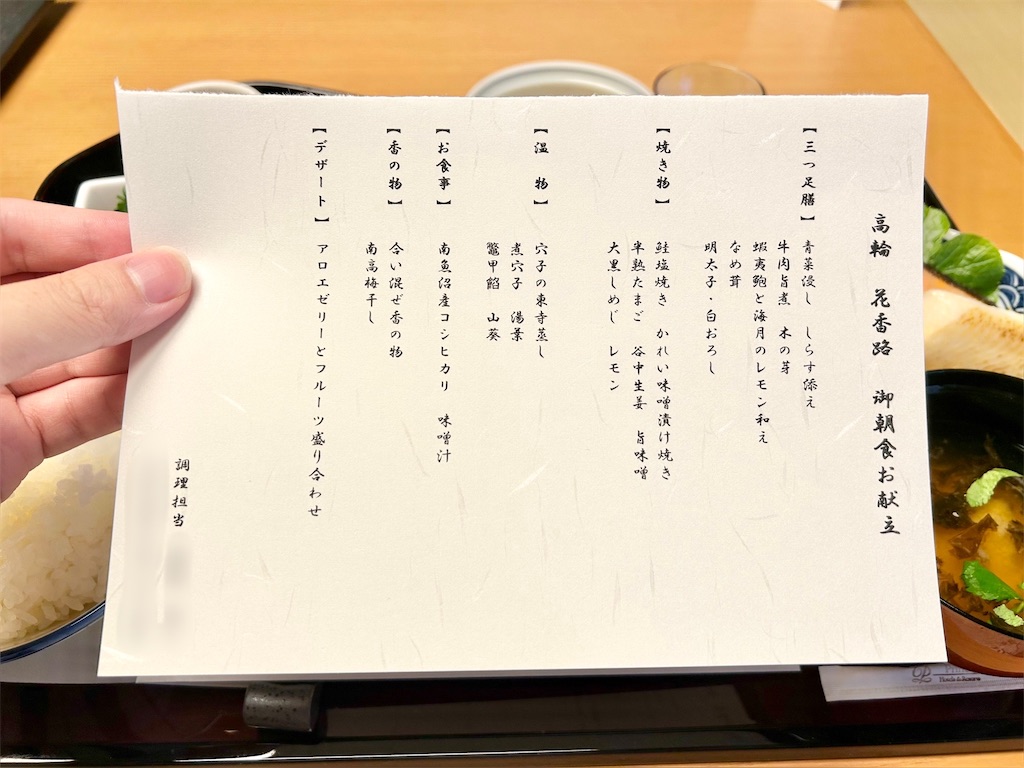 高輪　花香路　御朝食お献立
【三つ足膳】
青菜浸し　しらす添え
牛肉旨煮　木の芽
蝦夷鮑と海月のレモン和え
なめ茸
明太子・白おろし
【焼き物】
鮭塩焼き　かれい味噌漬け焼き
半熟たまご　谷中生姜　旨味噌
大黒しめじ　レモン
【温　物】
穴子の東寺蒸し
煮穴子　湯葉
鼈甲餡　山葵
【お食事】
南魚沼産コシヒカリ　味噌汁
【香の物】
合い混ぜ香の物
南高梅干し
【デザート】
アロエゼリーとフルーツ盛り合わせ
調理担当